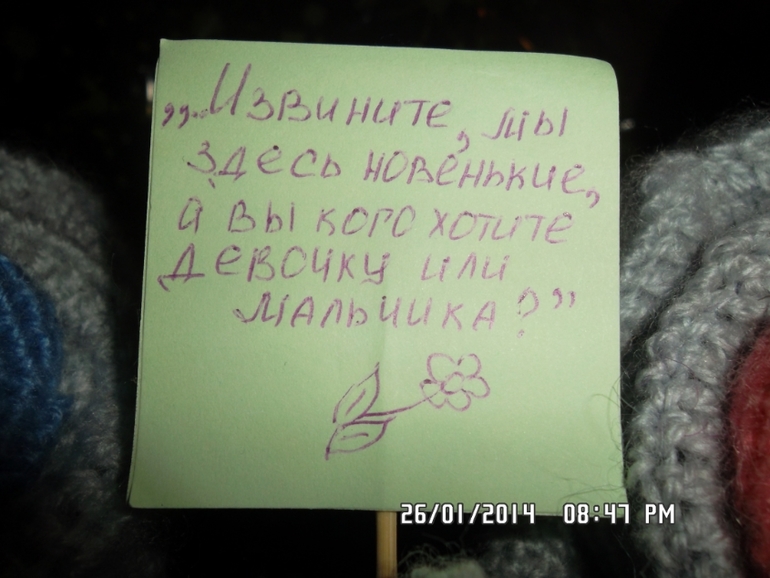 „...Извините, мы
здесь новенькие,
а вы кого хотите
девочку или
мальчика?”
26/01/2014 08:47 PM